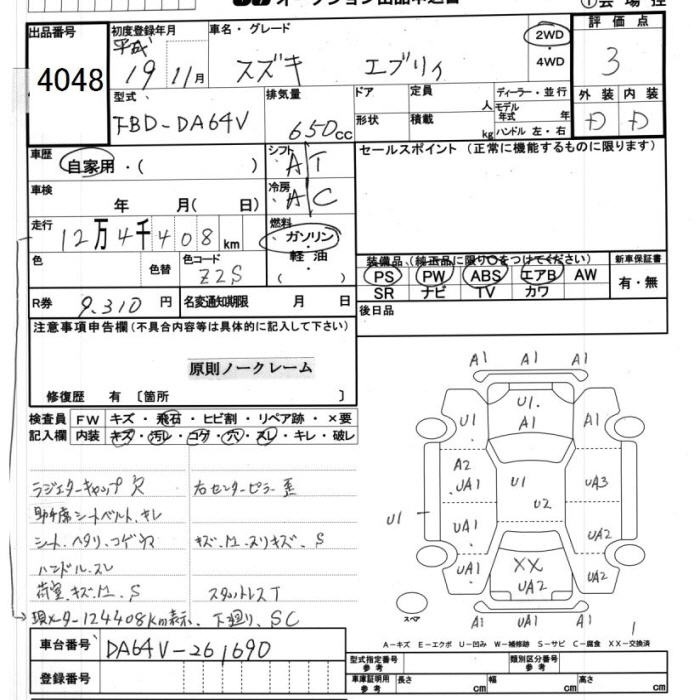 オークション出品申込書
①会場控
出品番号
4048
初度登録年月
平成
19 11月
車名・グレード
スズキ エブリィ
2WD
・
4WD
評価点
3
型式
FBD-DA64V
排気量
650cc
ドア
形状
定員
人
積載
kg
ディーラー・並行
モデル
年式
年
ハンドル 左・右
外装
内装
D
D
車歴
自家用・( )
シフト
AT
セールスポイント (正常に機能するものに限ります)
車検
年 月( 日)
冷房
AC
走行
12万4千408km
燃料
ガソリン
・
軽油
装備品 (純正品に限り○をつけてください)
PS PW ABS エアB AW
SR ナビ TV カワ
新車保証書
有・無
色
色替
色コード
Z2S
R券
9,310 円
名変通知期限 月 日
後日品
注意事項申告欄(不具合内容等は具体的に記入して下さい)
原則ノークレーム
修復歴 有 〔箇所 〕
検査員
記入欄
FW キズ・飛石・ヒビ割・リペア跡・×要
内装 キズ・汚レ・コゲ・穴・スレ・キレ・破レ
ラジエターキャップ欠
右センターピラー歪
助手席シートベルト、キレ
シート、ヘタリ、コゲ穴
キズ、凹、スリキズ、S
ハンドル、スレ
荷室、キズ、凹、S
スタットレスT
現メーター124408km表示、下廻り、SC
車台番号
DA64V-261690
登録番号
A1 A1 A1
U1
U1.
A1
A1
A2
UA1
U1
U2
UA3
U1
UA1
UA2
UA1
XX
UA2
UA2
UA1 A1 UA1
スペア
1
A-キズ E-エクボ U-凹み W-補修跡 S-サビ C-腐食 XX-交換済
型式指定番号
参考
類別区分番号
参考
車庫証明用
参考
長さ
cm
幅
cm
高さ
cm